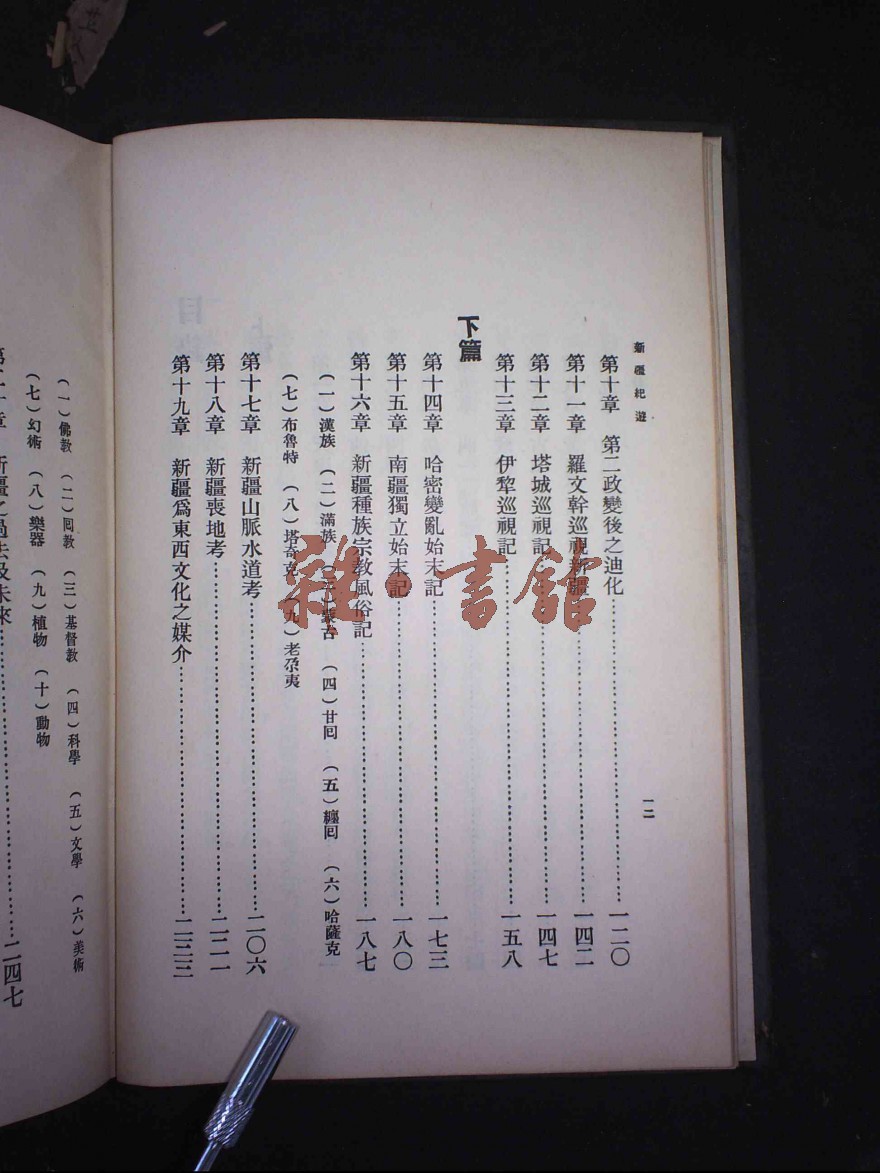 新疆紀遊
一二
第十章　第二政變後之迪化………一二〇
第十一章　羅文幹巡視新疆………一四二
第十二章　塔城巡視記………一四七
第十三章　伊犂巡視記………一五八
下篇
第十四章　哈密變亂始末記………一七三
第十五章　南疆獨立始末記………一八〇
第十六章　新疆種族宗教風俗記………一八七
（一）漢族　（二）滿族　（三）蒙古　（四）甘回　（五）纏回　（六）哈薩克
（七）布魯特　（八）塔奇克　（九）老尕夷
第十七章　新疆山脈水道考………二〇六
第十八章　新疆喪地考………二二一
第十九章　新疆爲東西文化之媒介………二三三
（一）佛教　（二）回教　（三）基督教　（四）科學　（五）文學　（六）美術
（七）幻術　（八）樂器　（九）植物　（十）動物
新疆之過去及未來………二四七
雜·書館